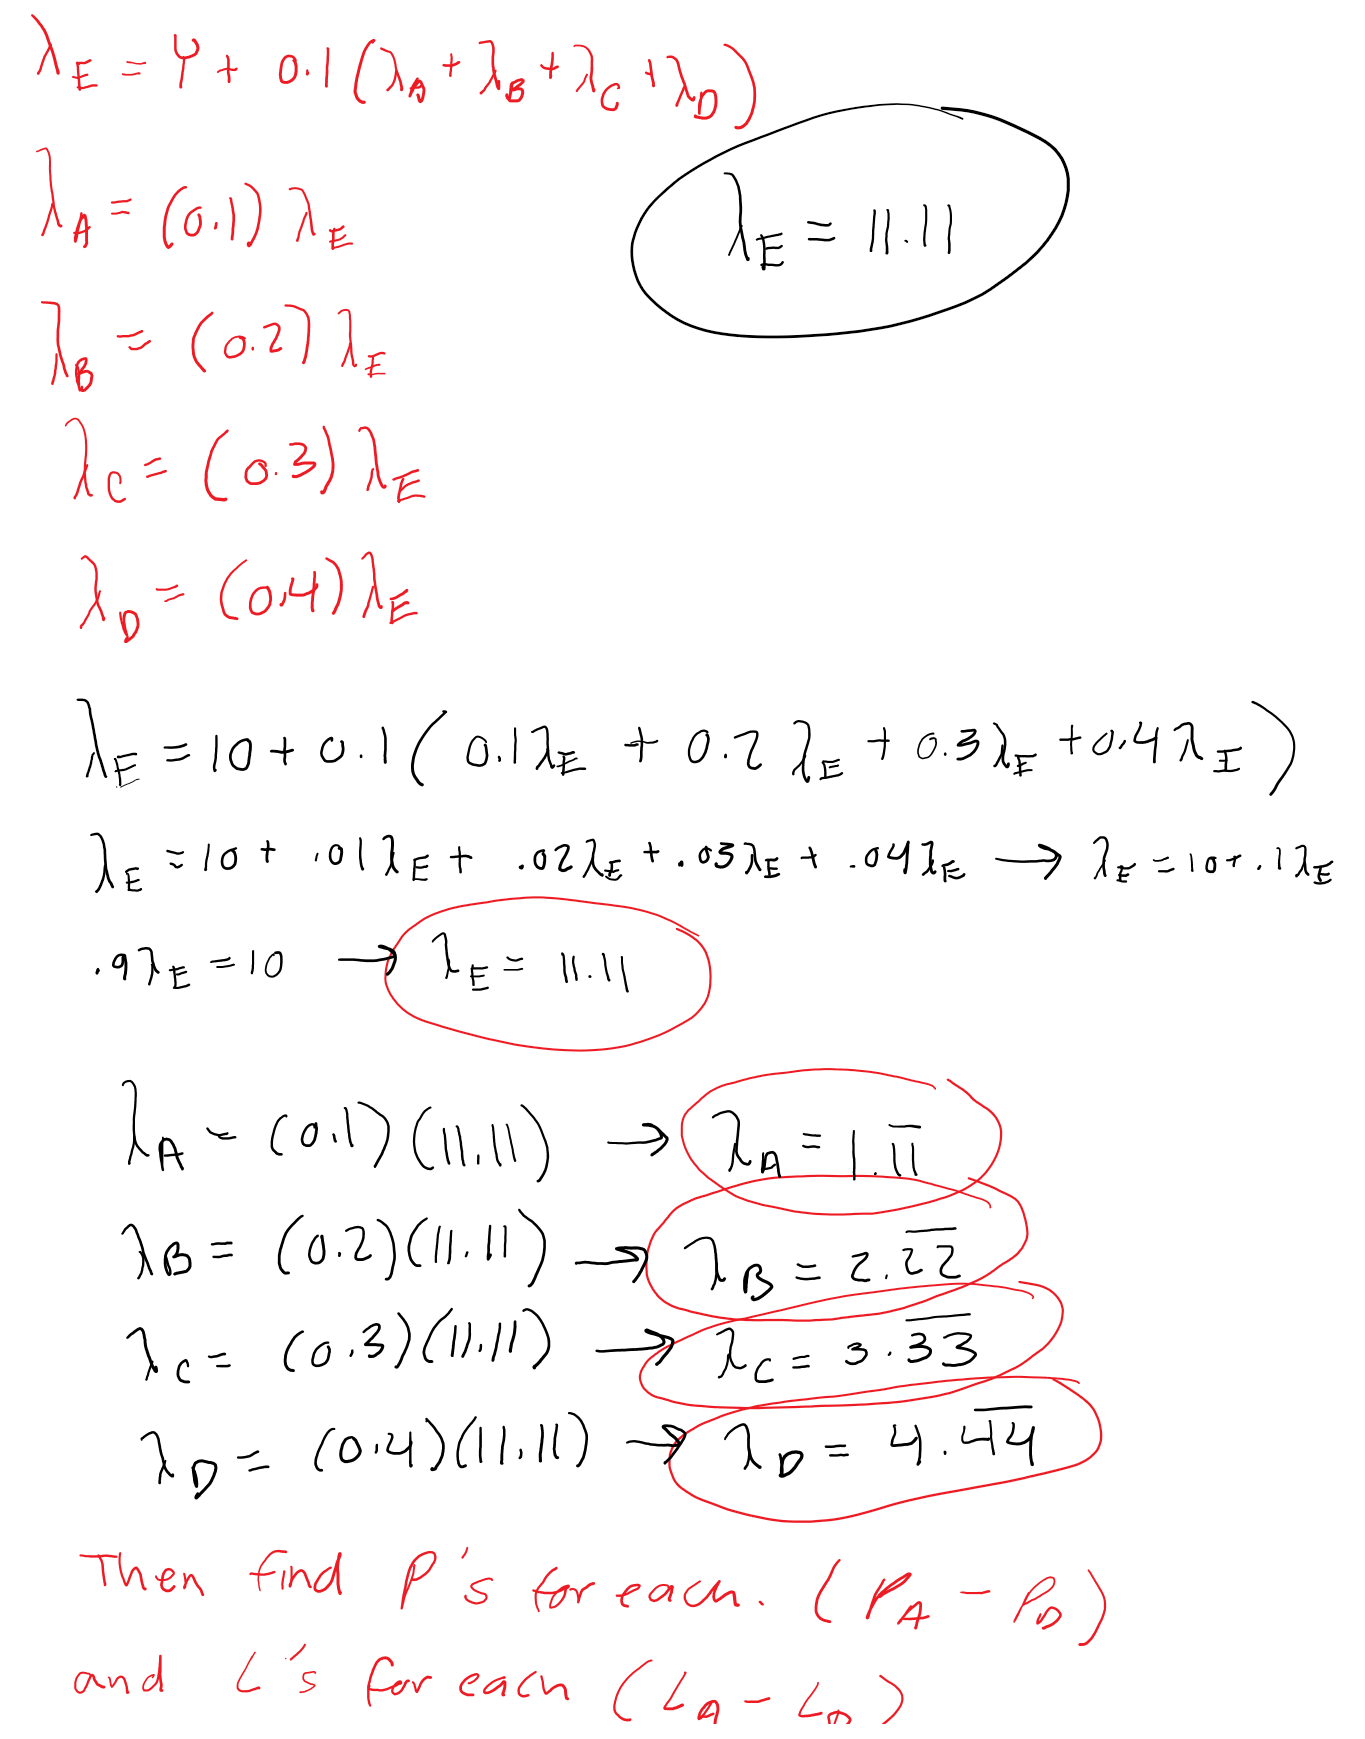 λE = γ + 0.1 (λA + λB + λC + λD)
λA = (0.1) λE
λE = 11.11
λB = (0.2) λE
λC = (0.3) λE
λD = (0.4) λE
λE = 10 + 0.1 ( 0.1λE + 0.2 λE + 0.3λE + 0.4λE )
λE = 10 + .01λE + .02λE + .03λE + .04λE → λE = 10 + .1λE
.9λE = 10 → λE = 11.11
λA = (0.1)(11.11) → λA = 1.1̅1̅
λB = (0.2)(11.11) → λB = 2.2̅2̅
λC = (0.3)(11.11) → λC = 3.3̅3̅
λD = (0.4)(11.11) → λD = 4.4̅4̅
Then find ρ's for each. (ρA - ρD)
and L's for each (LA - LD)